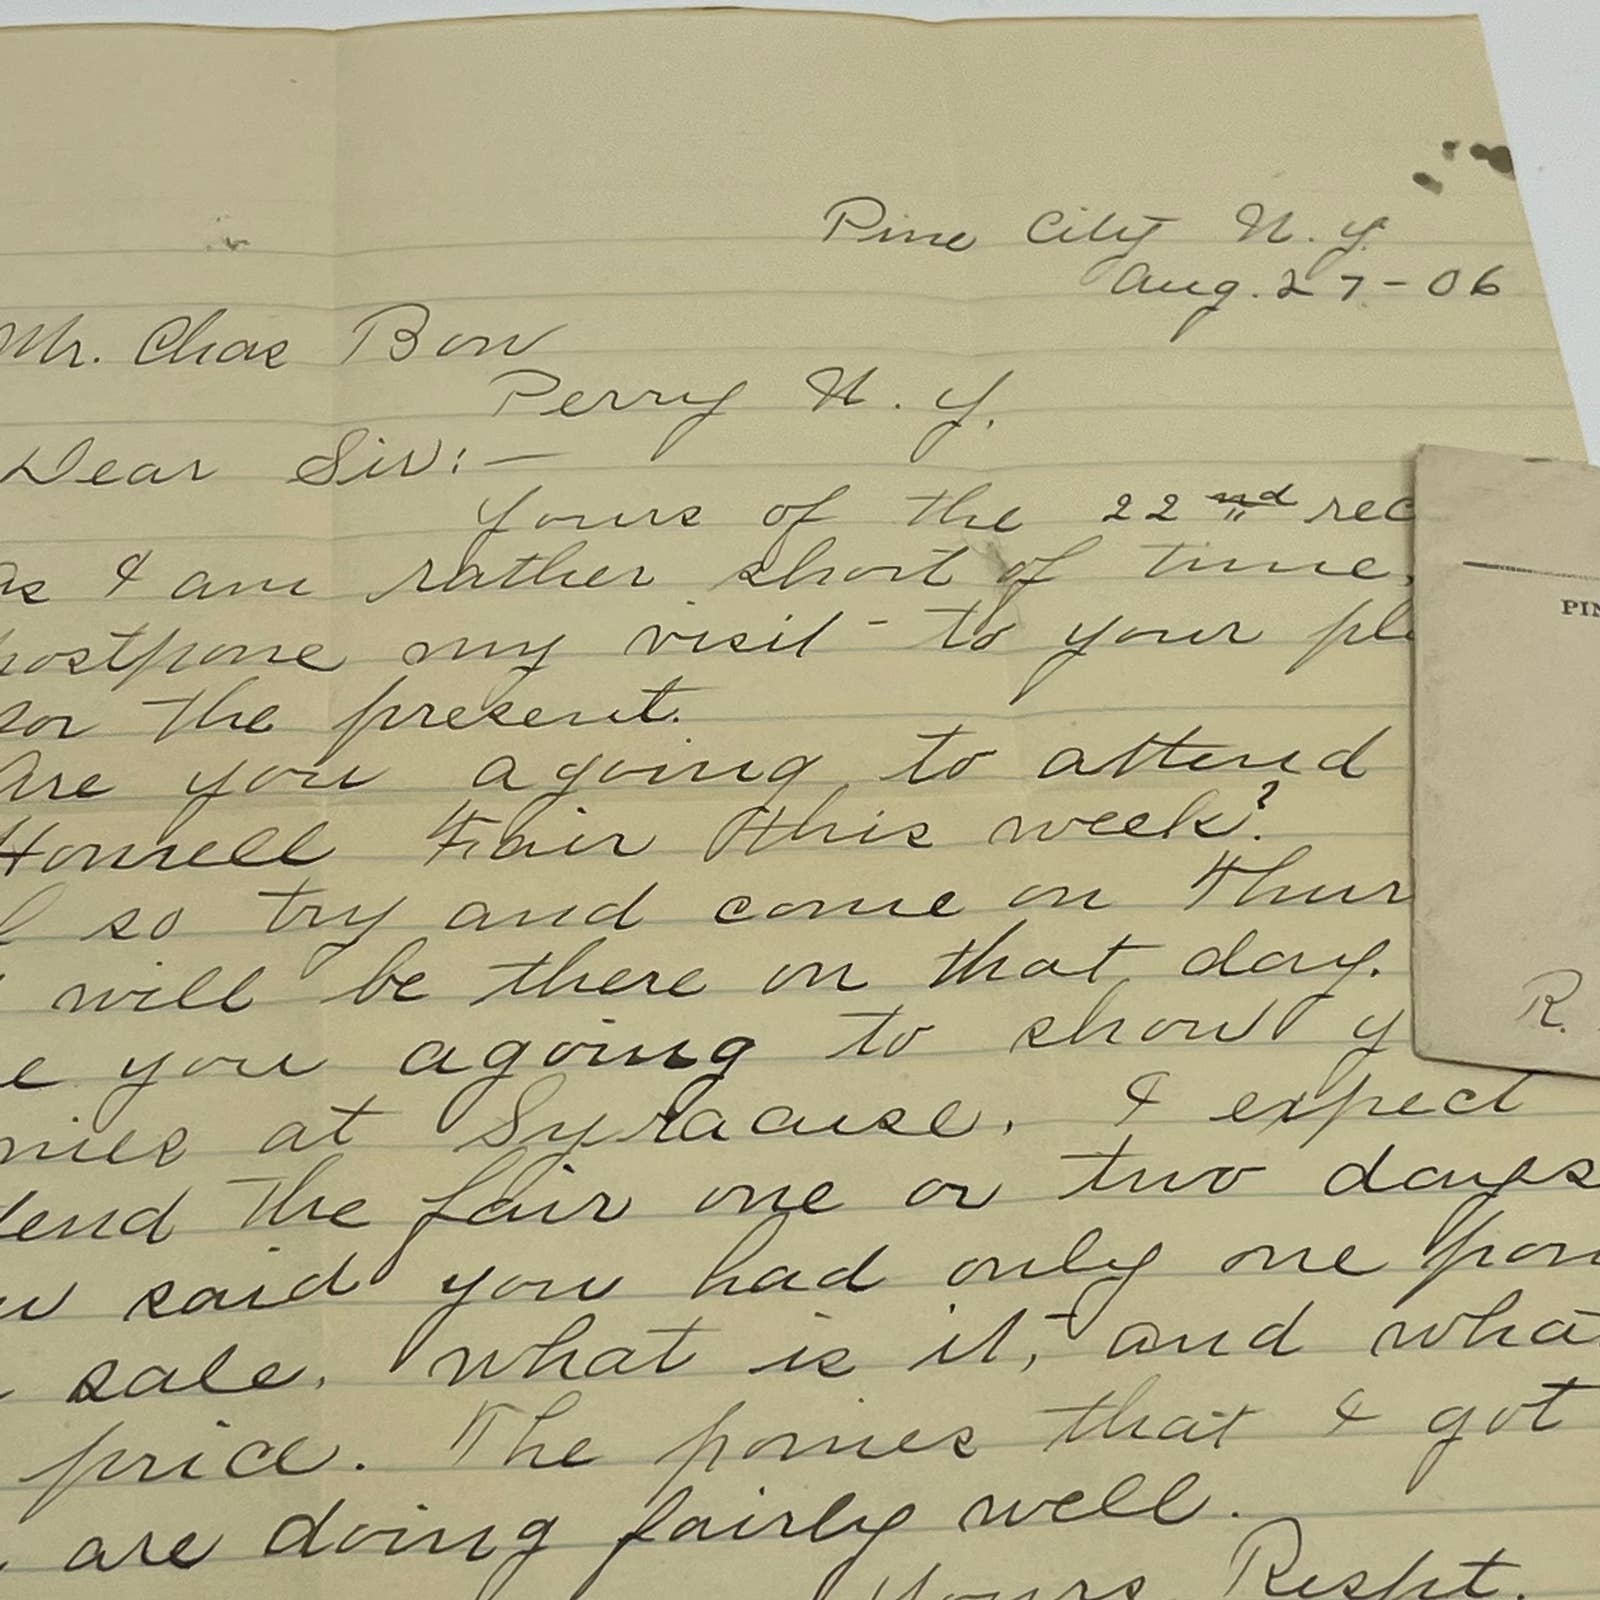 Pine City N.Y.
Aug. 27-06
Mr. Chas Bow
Perry N.Y.
Dear Sir:—
Yours of the 22nd rec
as I am rather short of time,
postpone my visit to your pl
for the present.
Are you agoing to attend
Hornell Fair this week?
so try and come on Thur
will be there on that day.
e you agoing to show y
nies at Syracuse. I expect
tend the fair one or two days
u said you had only one pon
sale. what is it, and wha
price. The ponies that I got
are doing fairly well.
Yours Respt.
PIN
R.